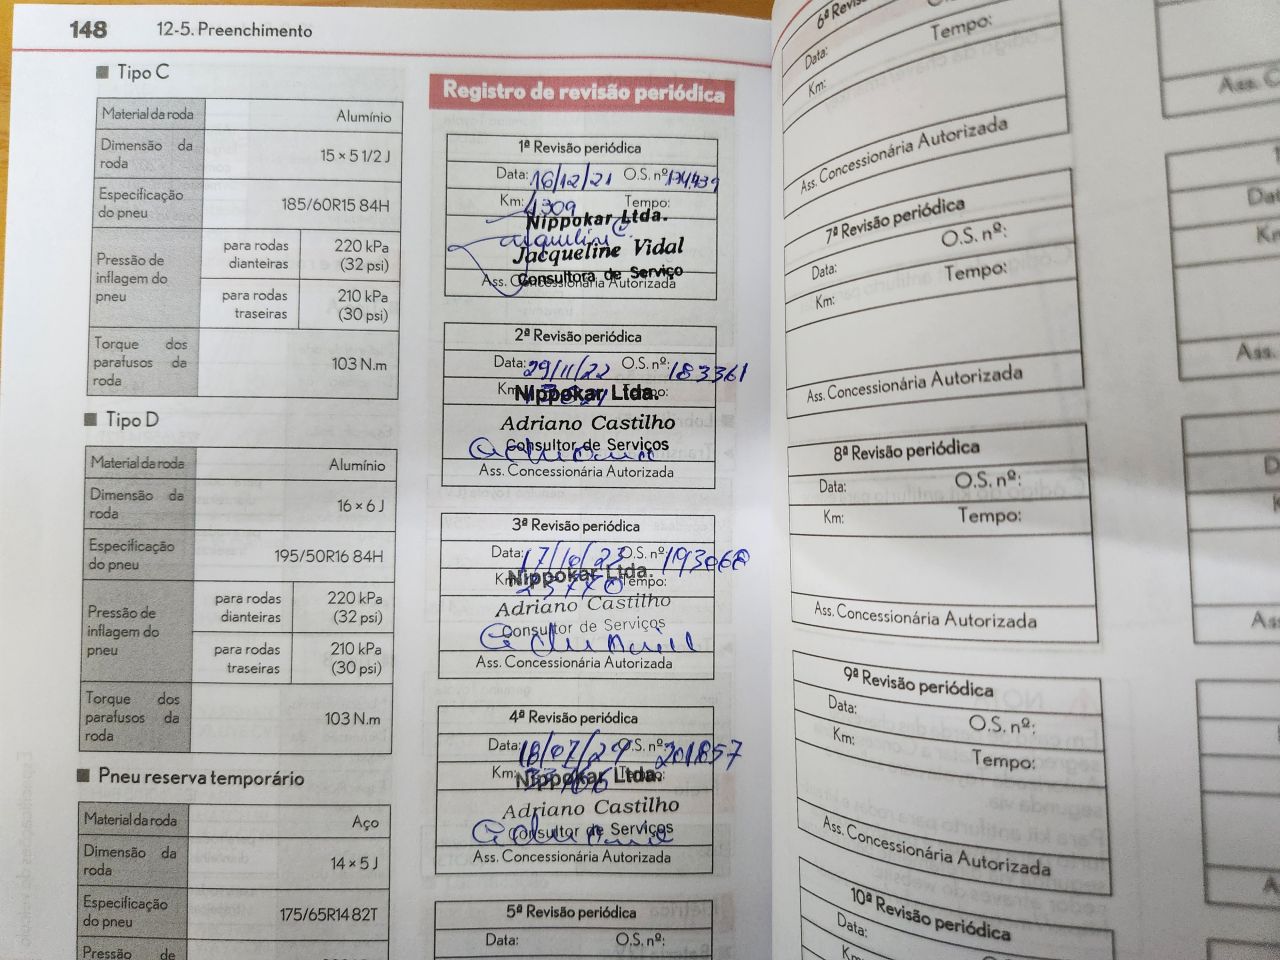 148 12-5. Preenchimento
■ Tipo C
Material da roda Alumínio
Dimensão da roda 15 × 5 1/2 J
Especificação do pneu 185/60R15 84H
Pressão de inflagem do pneu
para rodas dianteiras 220 kPa (32 psi)
para rodas traseiras 210 kPa (30 psi)
Torque dos parafusos da roda 103 N.m
■ Tipo D
Material da roda Alumínio
Dimensão da roda 16 × 6 J
Especificação do pneu 195/50R16 84H
Pressão de inflagem do pneu
para rodas dianteiras 220 kPa (32 psi)
para rodas traseiras 210 kPa (30 psi)
Torque dos parafusos da roda 103 N.m
■ Pneu reserva temporário
Material da roda Aço
Dimensão da roda 14 × 5 J
Especificação do pneu 175/65R14 82T
Pressão de
Registro de revisão periódica
1ª Revisão periódica
Data: 16/12/21 O.S. nº:
Km: 4309 Tempo:
Nippokar Ltda.
Jacqueline Vidal
Consultora de Serviço
Ass. Concessionária Autorizada
2ª Revisão periódica
Data: 29/11/22 O.S. nº: 183361
Km: Tempo:
Nippokar Ltda.
Adriano Castilho
Consultor de Serviços
Ass. Concessionária Autorizada
3ª Revisão periódica
Data: 17/10/23 O.S. nº: 193068
Km: 23770 Tempo:
Nippokar Ltda.
Adriano Castilho
Consultor de Serviços
Ass. Concessionária Autorizada
4ª Revisão periódica
Data: 18/07/24 O.S. nº: 201857
Km: Tempo:
Nippokar Ltda.
Adriano Castilho
Consultor de Serviços
Ass. Concessionária Autorizada
5ª Revisão periódica
Data: O.S. nº:
6ª Revis
Data:
Km: Tempo:
Ass. Concessionária Autorizada
7ª Revisão periódica
Data: O.S. nº:
Km: Tempo:
Ass. Concessionária Autorizada
8ª Revisão periódica
Data: O.S. nº:
Km: Tempo:
Ass. Concessionária Autorizada
9ª Revisão periódica
Data: O.S. nº:
Km: Tempo:
Ass. Concessionária Autorizada
10ª Revisão periódica
Data: O.S. nº:
Km: Tempo: